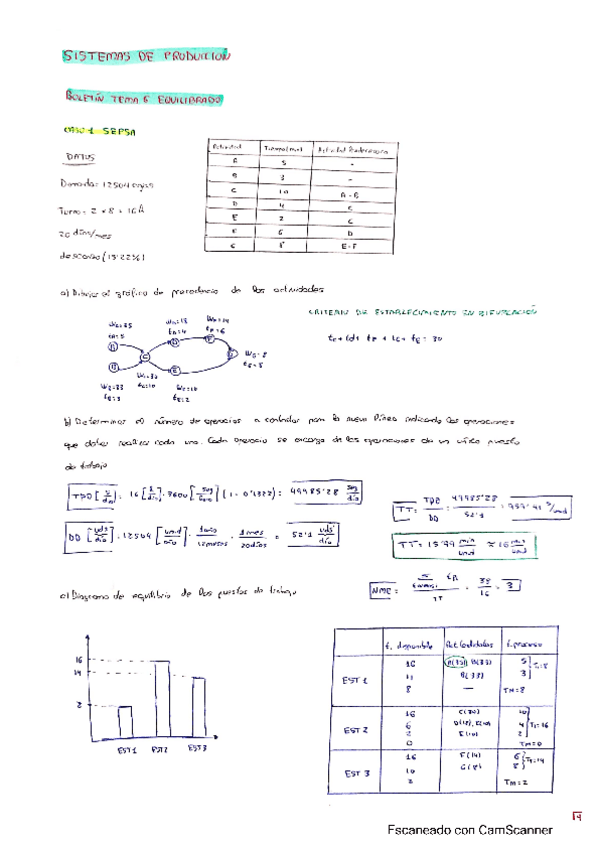 SISTEMAS DE PRODUCCION
BOLETÍN TEMA 6 EQUILIBRADO
CASO 1 SEPSA
DATOS
Demanda: 12504 cajas
Turno = 2 x 8 = 16 h
20 días/mes
descanso (13'22%)
Actividad Tiempo (min) Actividad Predecesora
A 5 -
B 3 -
C 10 A-B
D 4 C
E 2 C
F 6 D
G 8 E-F
a) Dibujar el gráfico de precedencia de las actividades
CRITERIO DE ESTABLECIMIENTO EN
WG=8
b) Determinar el número de operarios a contratar para la nueva línea indicando las operaciones
que debe realizar cada uno. Cada operario se encarga de las operaciones de un único puesto
de trabajo
TDD = 16 · 3600 (1 - 0'1322) = 49985'28 seg/día
TT = TDD / DD = 49985'28 / 52'1 = 959'41 s/und
DD = 12504 · 1 año / 12 meses · 1 mes / 20 días = 52'1 uds/día
TT = 15'99 min/und ≈ 16 min/und
c) Diagrama de equilibrio de los puestos de trabajo
NME = 38 / 16 = 3
16
14
2
EST 1 EST 2 EST 3
t. disponible Act. Candidatas t. proceso
EST 1
16 A(35) B(33) 5
11 B(33) 3
8 — TM=8
EST 2
16 C(30) 10
6 D(18), E(10) 4
2 E(10) 2
0 TM=0
T=16
EST 3
16 F(14) 6
10 G(8) 8
2 TM=2
T=14
14
Escaneado con CamScanner